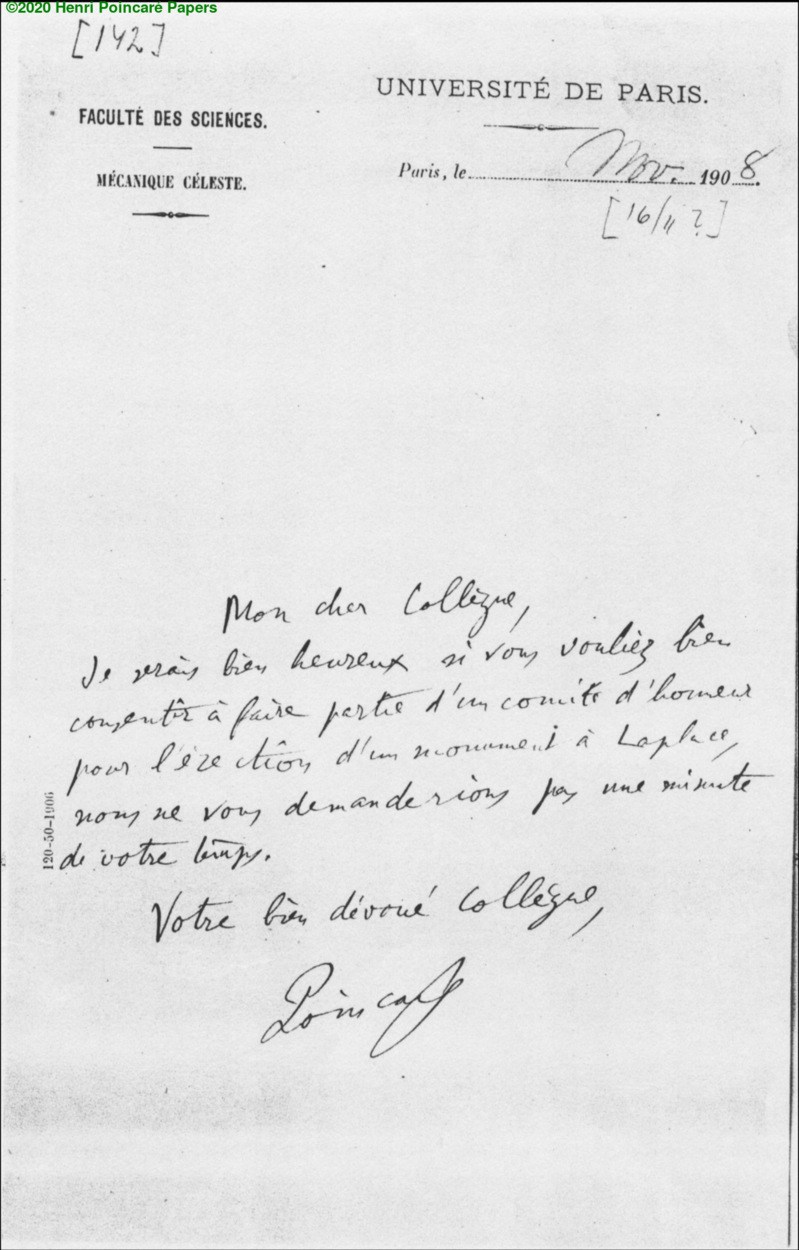 ©2020 Henri Poincaré Papers
[142]
UNIVERSITÉ DE PARIS.
FACULTÉ DES SCIENCES.
MÉCANIQUE CÉLESTE.
Paris, le Nov. 1908.
[16/11 ?]
Mon cher Collègue,
Je serais bien heureux si vous vouliez bien
consentir à faire partie d'un comité d'honneur
pour l'érection d'un monument à Laplace,
nous ne vous demanderions pas une minute
de votre temps.
Votre bien dévoué collègue,
Poincaré
120-50-1906